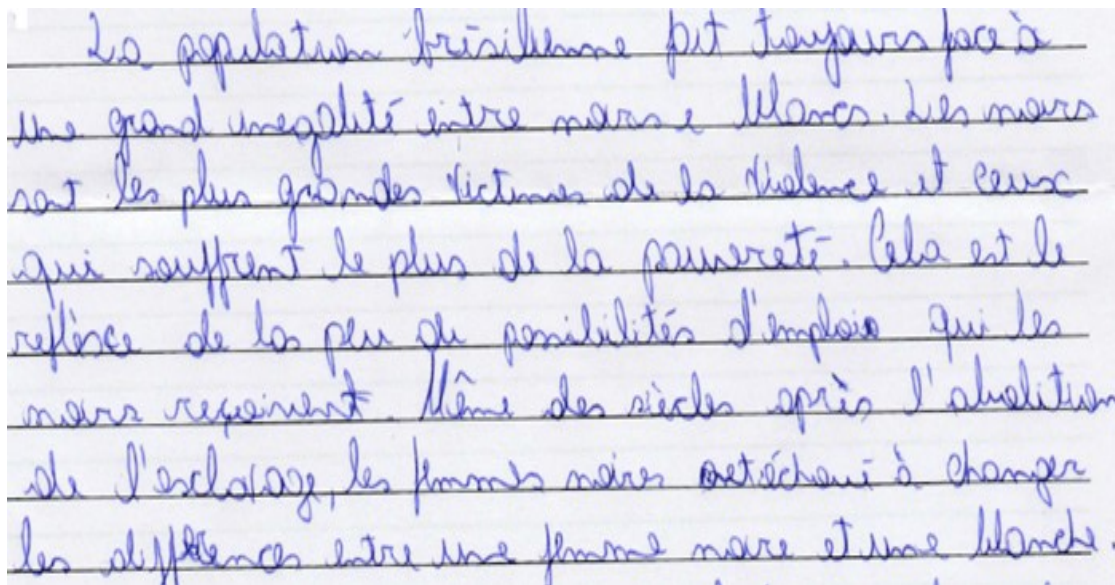 La population brésilienne fait toujours face à
une grand inegalité entre noirs e blancs. Les noirs
sont les plus grandes victimes de la violence et ceux
qui souffrent le plus de la pauvreté. Cela est le
reflèxe de las peu de possibilités d'emploie qui les
noirs reçoivent. Même des siècles après l'abolition
de l'esclavage, les femmes noires ont échoué à changer
les différences entre une femme noire et une blanche.